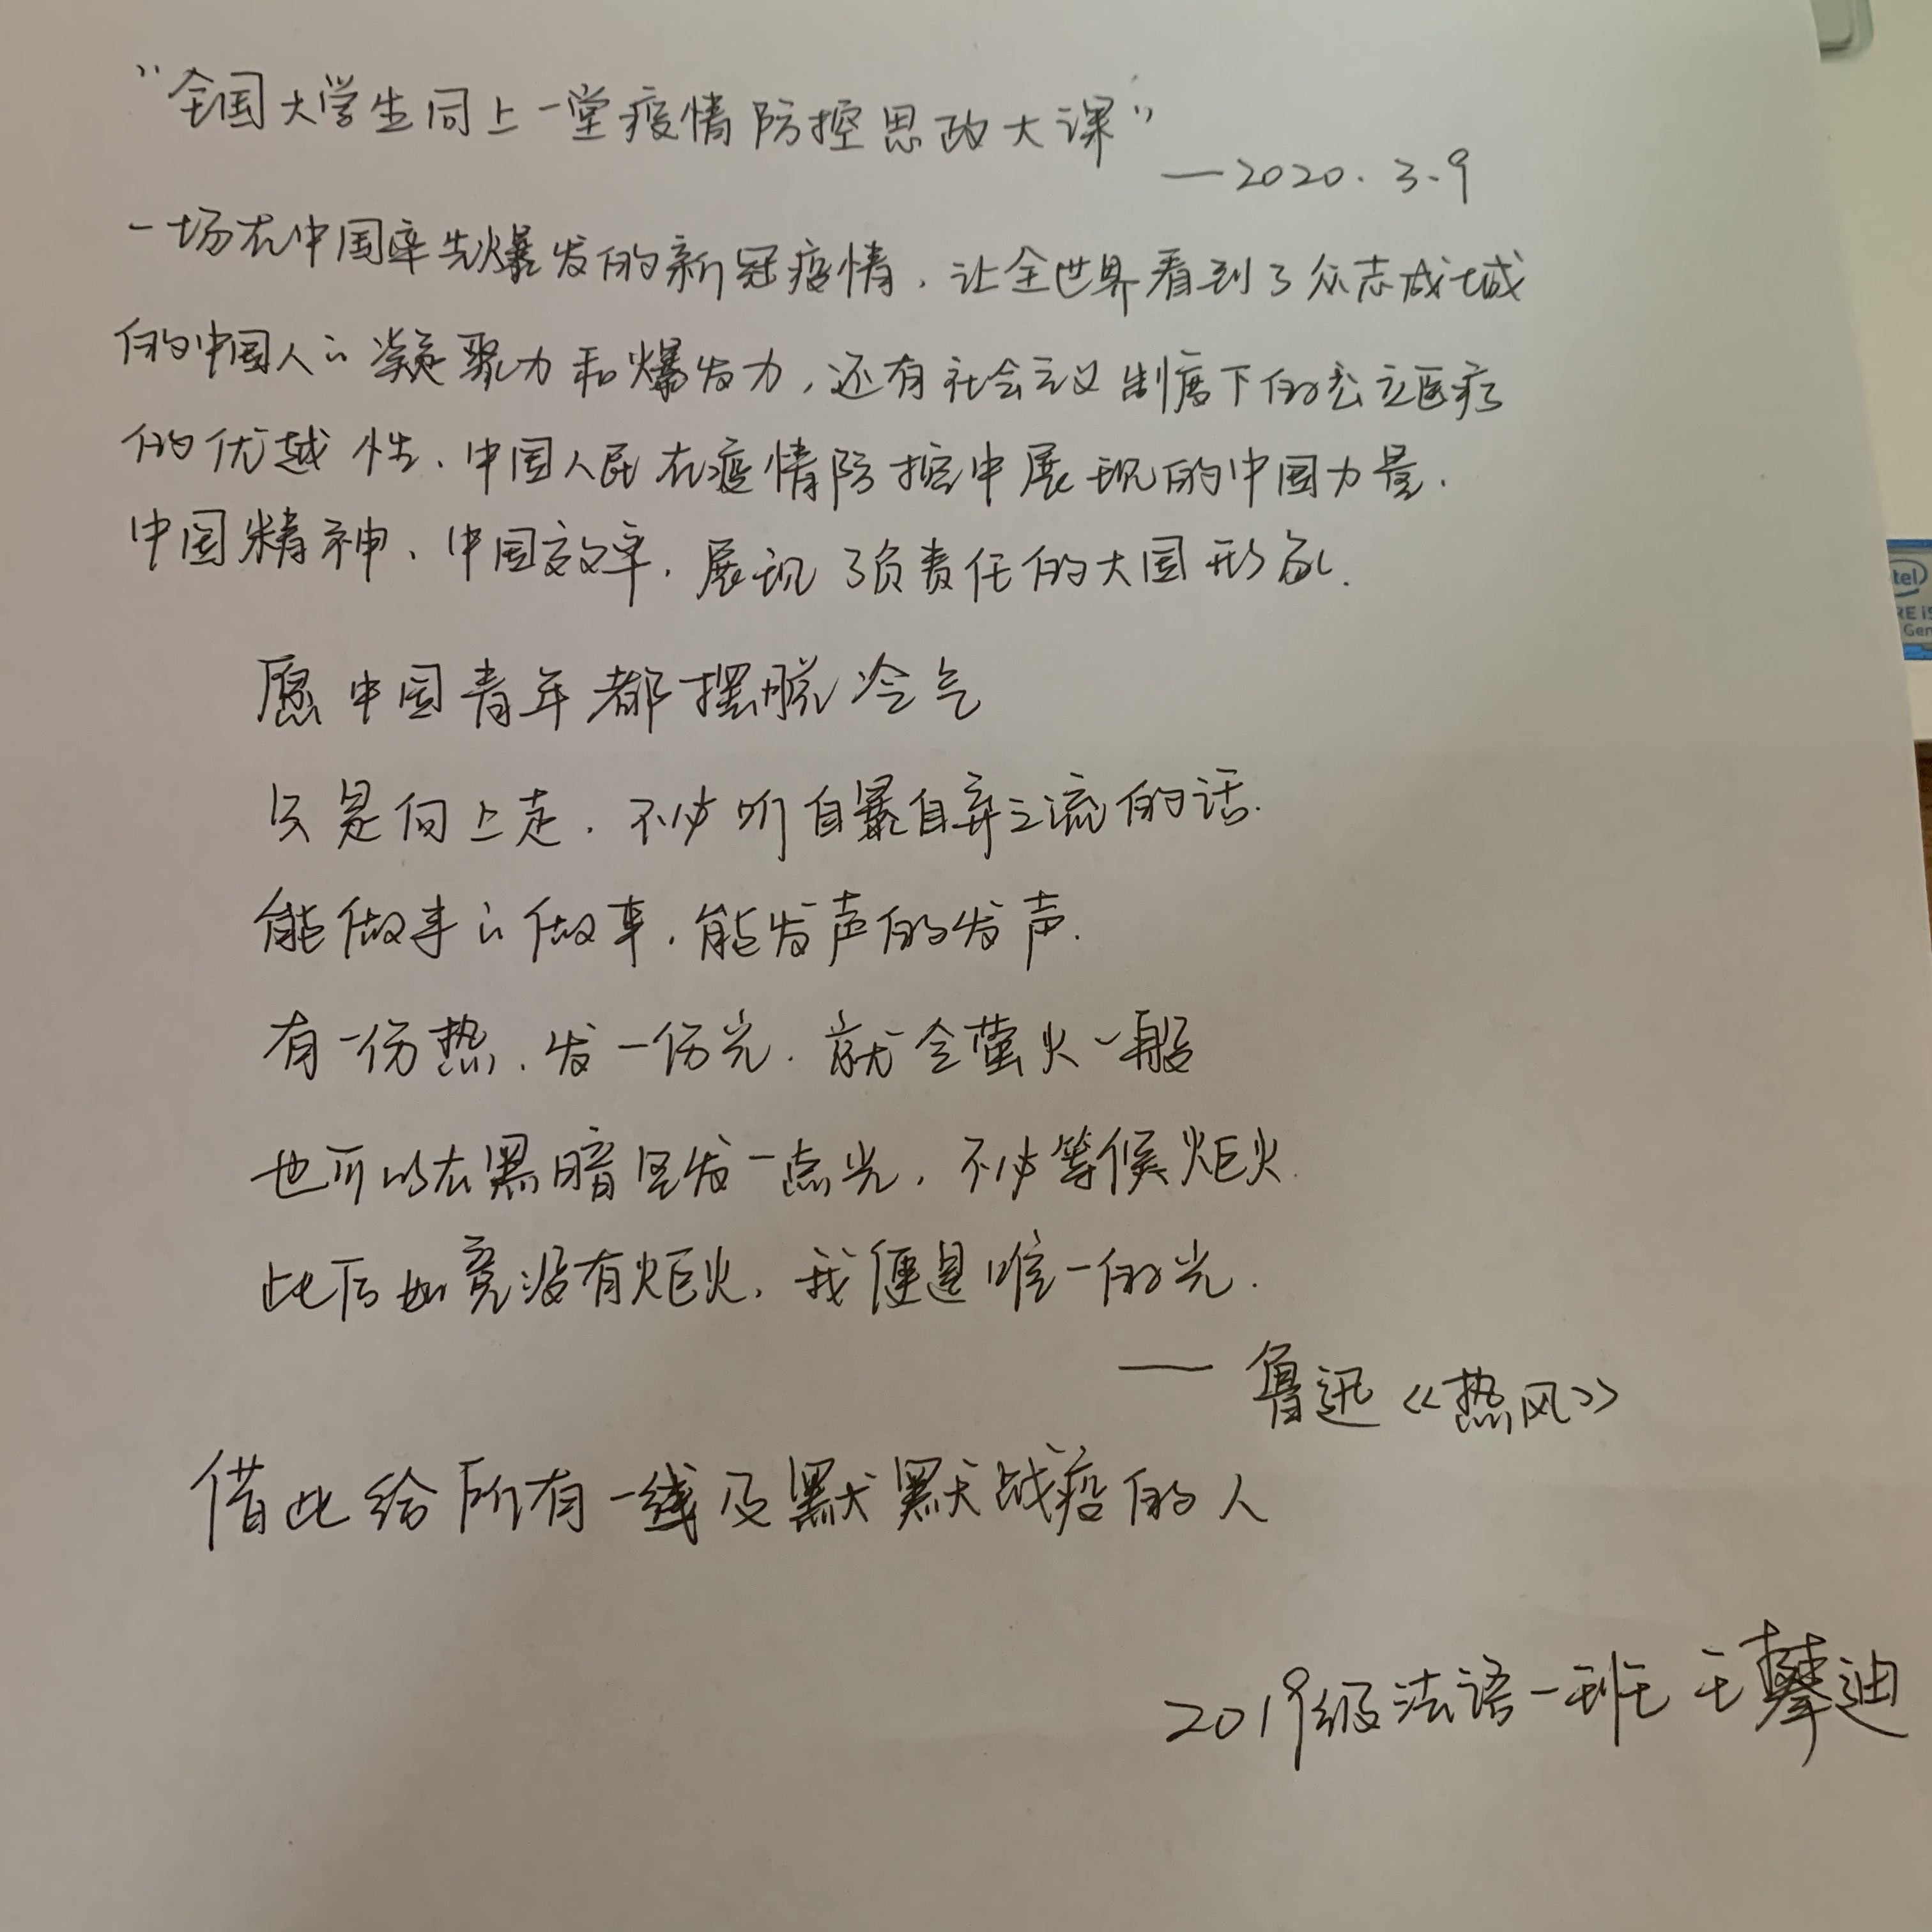 “全国大学生同上一堂疫情防控思政大课”
—2020.3.9
一场在中国率先爆发的新冠疫情，让全世界看到了众志成城
的中国人的凝聚力和爆发力，还有社会主义制度下的公立医疗
的优越性、中国人民在疫情防控中展现的中国力量、
中国精神、中国效率，展现了负责任的大国形象.
愿中国青年都摆脱冷气
只是向上走，不必听自暴自弃之流的话.
能做事的做事，能发声的发声.
有一份热，发一份光.就令萤火一般
也可以在黑暗里发一点光，不必等候炬火.
此后如竟没有炬火，我便是唯一的光.
—— 鲁迅《热风》
借此给所有一线及默默战疫的人
2019级法语一班 王攀迪
intel
CORE i5
Gen